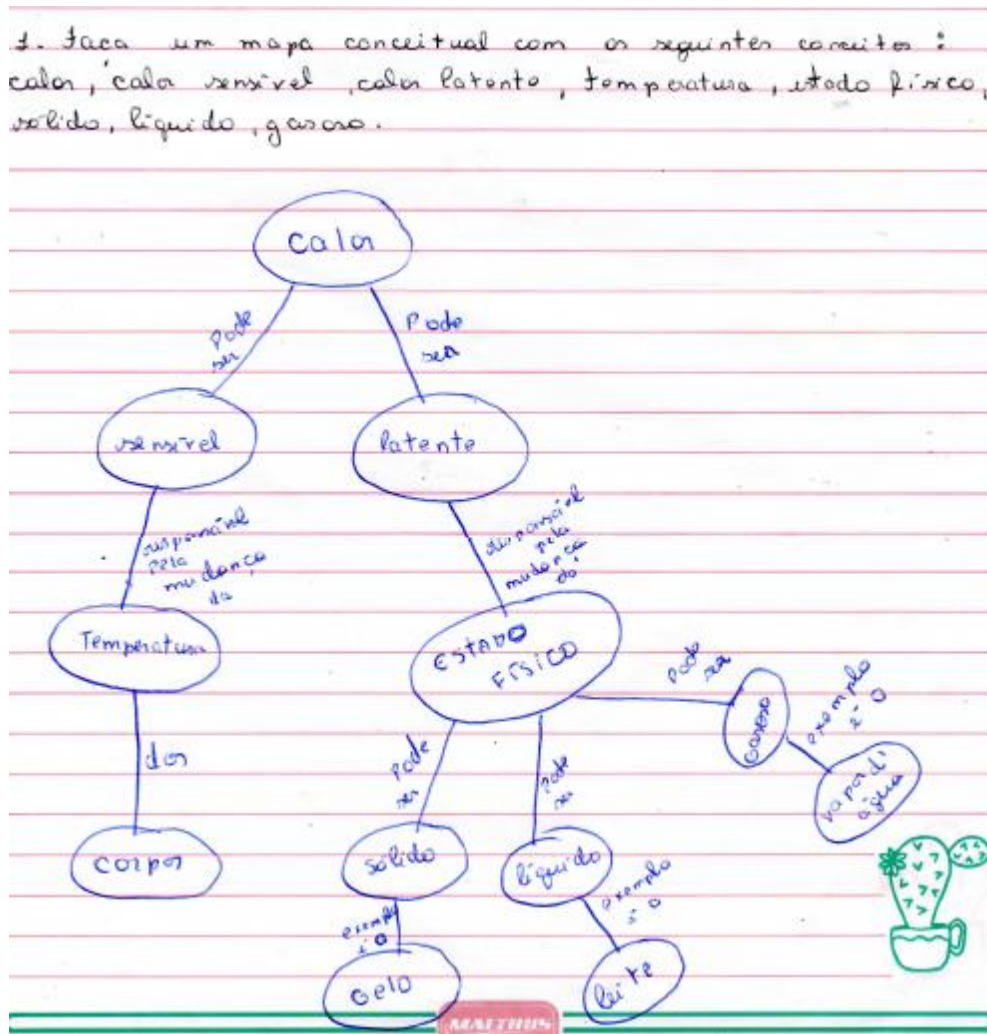 1. Faça um mapa conceitual com os seguintes conceitos :
calor, calor sensível, calor latente, temperatura, estado físico,
sólido, líquido, gasoso.
Calor
Pode
ser
Pode
ser
sensível
latente
responsável
pela
mudança
da
responsável
pela
mudança
do
Temperatura
ESTADO
FÍSICO
Pode
ser
Gasoso
exemplo
é o
vapor d'
água
dos
Corpos
Pode
ser
Pode
ser
sólido
líquido
exemplo
é o
exemplo
é o
Gelo
leite
MALTHUS